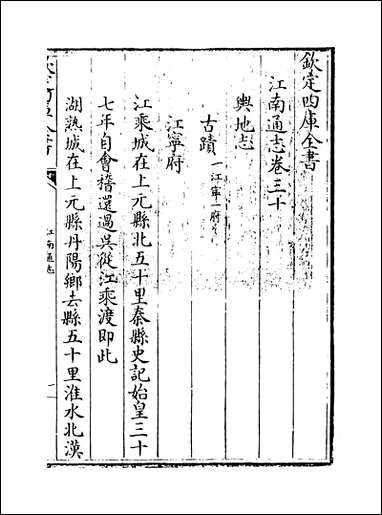 欽定四庫全書
江南通志卷三十
輿地志
古蹟一江寧一府
江寧府
江乘城在上元縣北五十里秦縣史記始皇三十
七年自會稽還過吳從江乘渡即此
湖熟城在上元縣丹陽鄉去縣五十里淮水北漢
江南通志